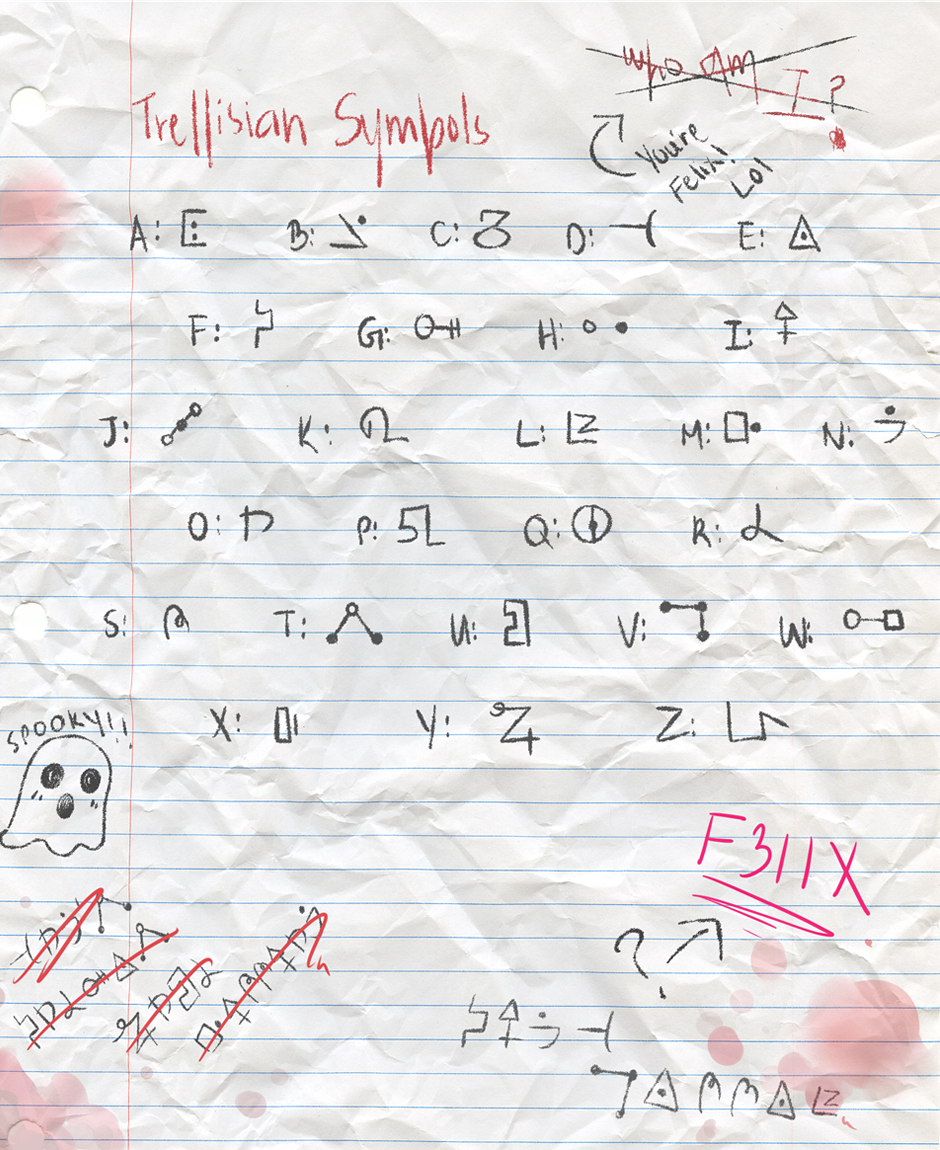 Who Am I?
Trellisian Symbols
You're
Felix!
Lol
A: B: C: D: E:
F: G: H: I:
J: K: L: M: N:
O: P: Q: R:
S: T: U: V: W:
X: Y: Z:
SPOOKY!!
F311X
?